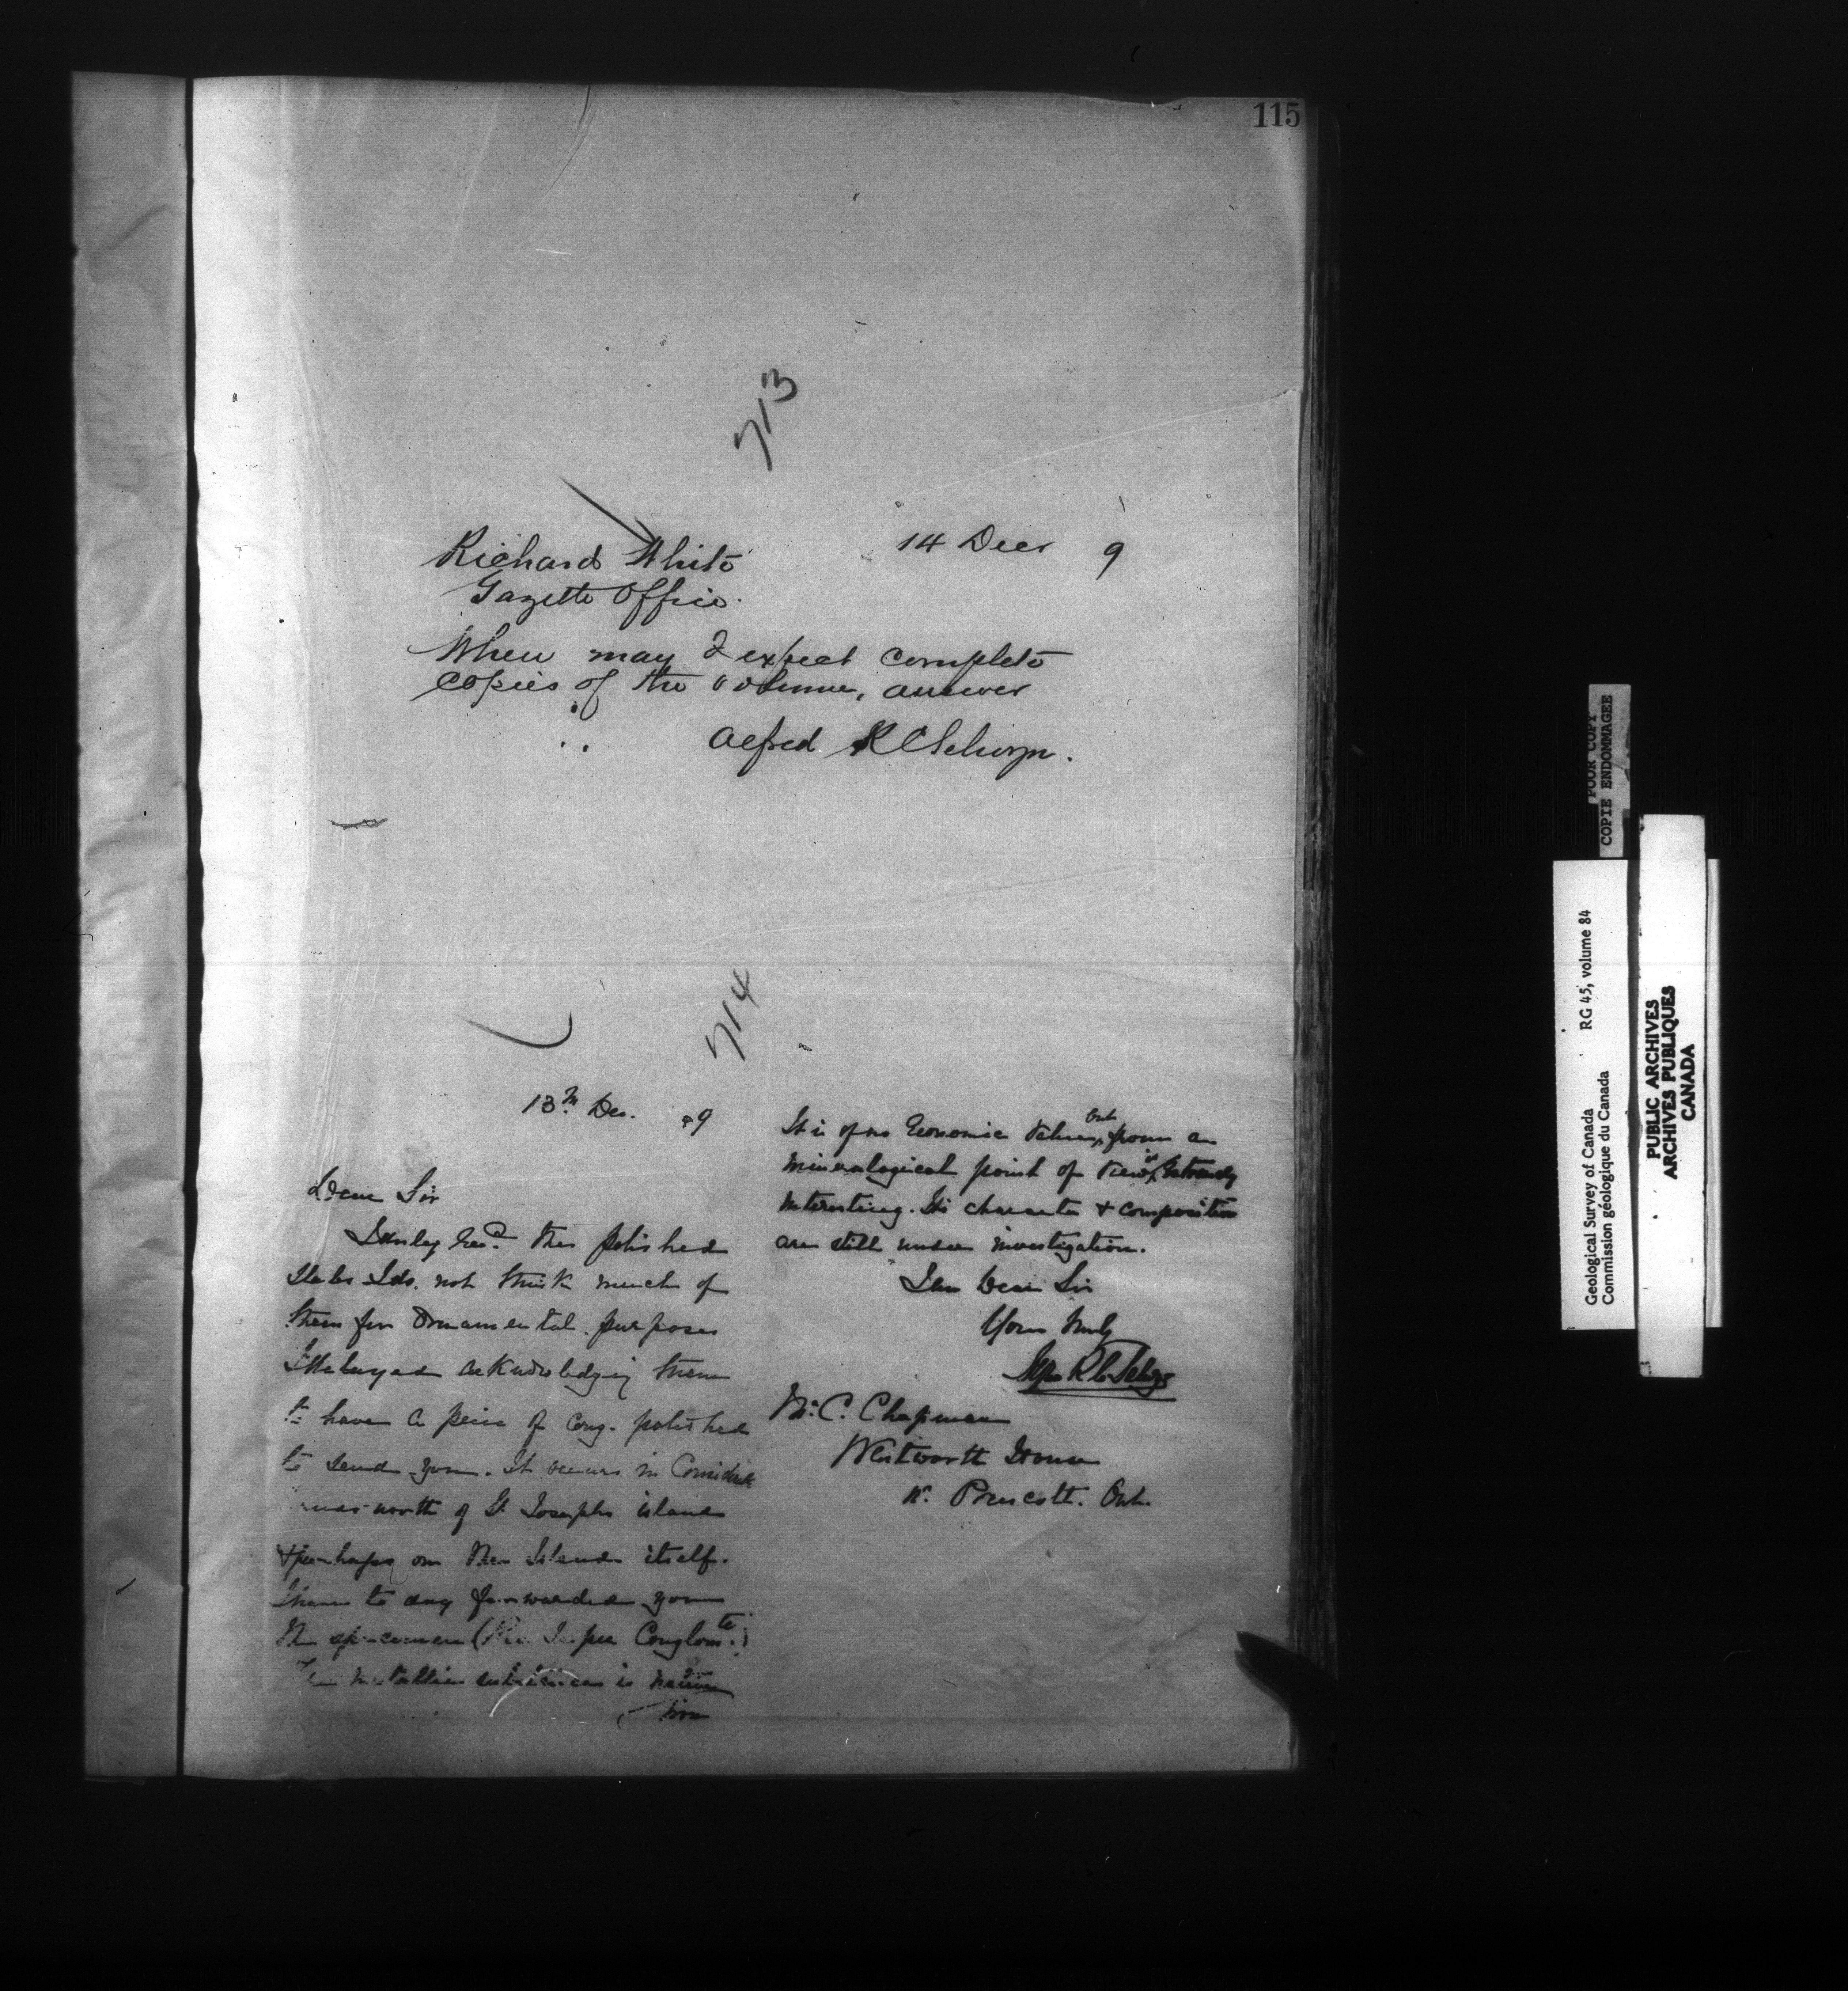 115
713
14 Decr 9
Richard White
Gazette Office.
When may I expect complete
copies of the volume, answer
Alfred R C Selwyn.
714
13th Dec. 89
Dear Sir
I duly recd. the polished
slabs I do. not think much of
them for Ornamental purposes
I delayed acknowledging them
to have a peice of Cong. polished
to send you. It occurs in
north of St. Josephs island
& perhaps on the Island itself.
I have to day forwarded you
the specimen (the Jasper Conglomte.)
The metallic substance is native
iron
It is of no Economic value, but from a
mineralogical point of view, is Extremely
interesting. Its character & composition
are still under investigation.
I am Dear Sir
Yours truly
Alfred R C Selwyn
Mr. C. Chapman
Wentworth House
Nr. Prescott. Ont.
POOR COPY
COPIE ENDOMMAGEE
Geological Survey of Canada RG 45, volume 84
Commission géologique du Canada
PUBLIC ARCHIVES
ARCHIVES PUBLIQUES
CANADA